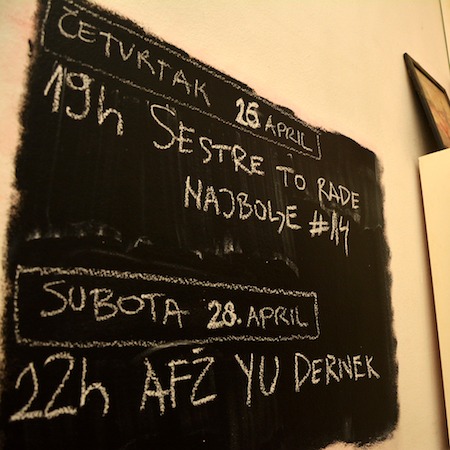 ČETVRTAK 26 APRIL
19h SESTRE TO RADE
NAJBOLJE #14
SUBOTA 28. APRIL
22h AFŽ YU DERNEK